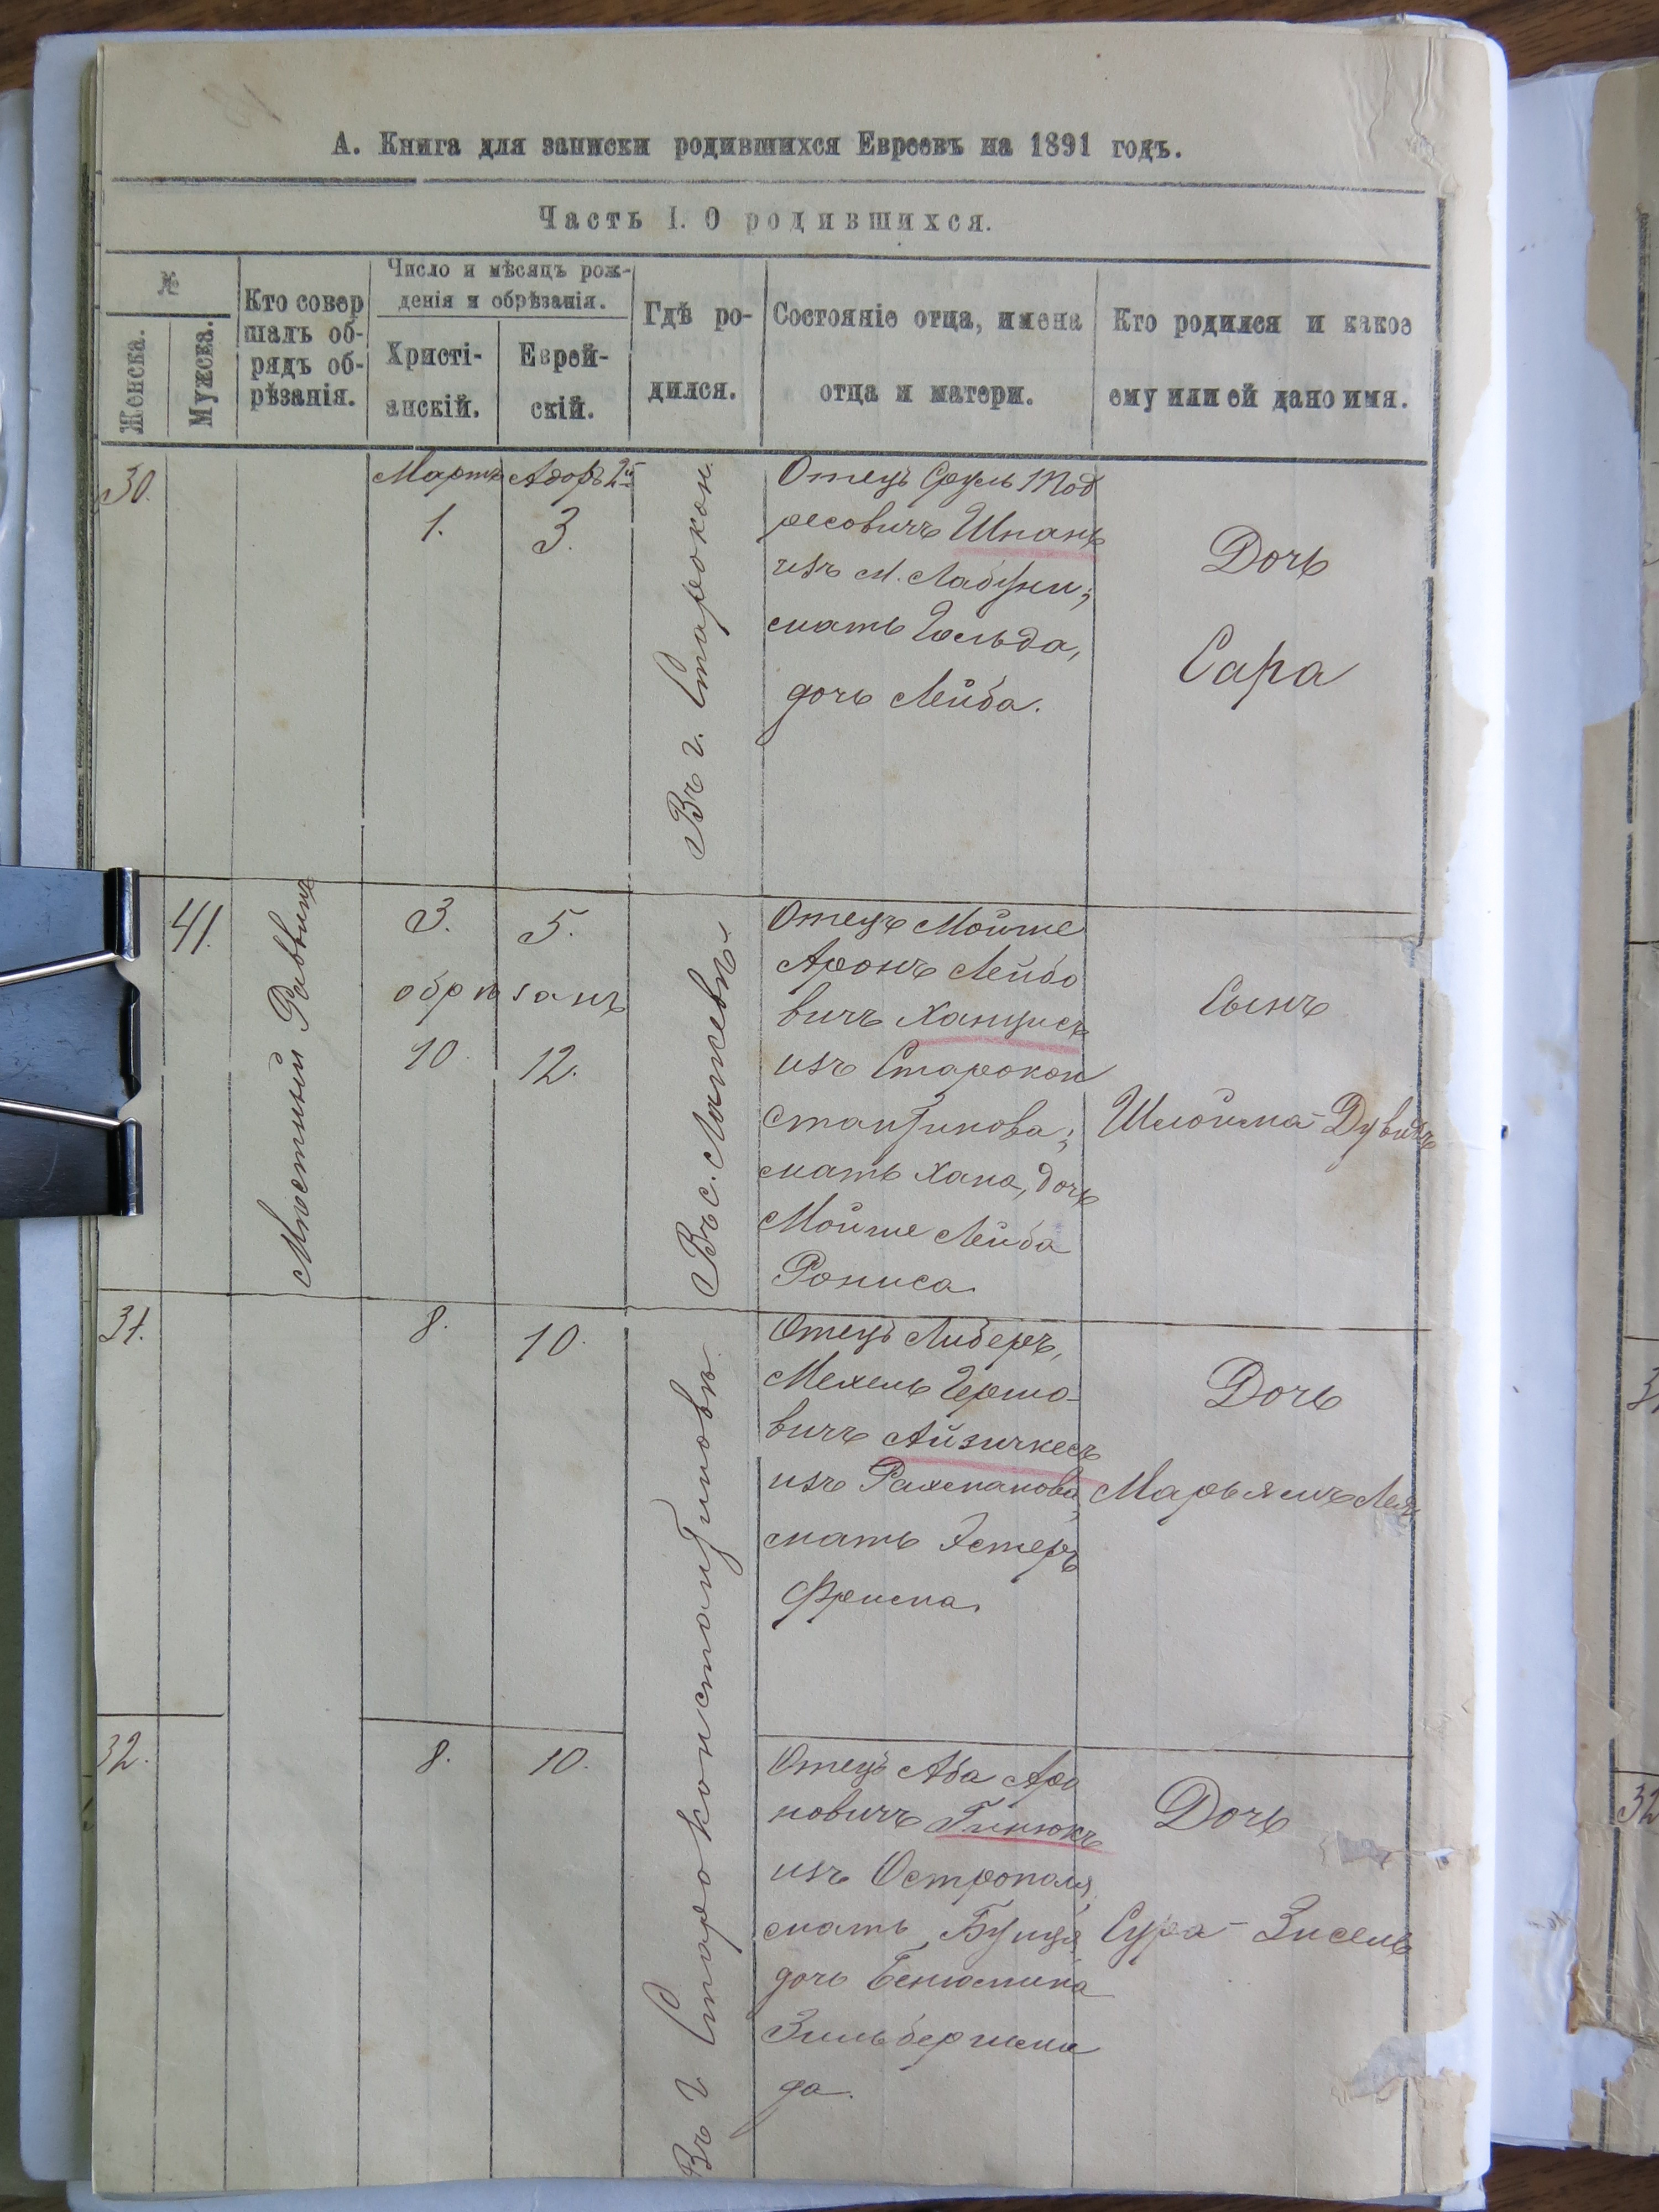 А. Книга для записки родившихся Евреевъ на 1891 годъ.
Часть I. О родившихся.
№
Женска.
Мужска.
Кто совер
шалъ об-
рядъ об-
рѣзанія.
Число и мѣсяцъ рож-
денія и обрѣзанія.
Христі-
анскій.
Еврей-
скій.
Гдѣ ро-
дился.
Состояніе отца, имена
отца и матери.
Кто родился и какое
ему или ей дано имя.
30.
Мартъ
1.
Адоръ 2й
3.
Въ г. Старокон.
Отецъ Сруль Тод
ресовичъ Шпакъ
изъ м. Лабуни;
мать Гольда,
дочь Лейба.
Дочь
Сара
41.
Мѣстный Раввинъ
3.
5.
обрѣзанъ
10.
12.
Въ с.
Отецъ Мойше
Аронъ Лейбо
вичъ Ханцисъ
изъ Старокон
стантинова;
мать Хана, дочь
Мойше Лейба
Рониса
Сынъ
Шлойма-Дувидъ
31.
8.
10.
Отецъ Либеръ,
Мехель Гершо-
вичъ Айзичкесъ
изъ Рахманова,
мать Эстеръ
Фрима.
Дочь
Марьямъ Лея
32.
8.
10.
Въ г Староконстантиновѣ.
Отецъ Аба Аро
новичъ Гинюкъ
изъ Острополя,
мать Буция
дочь Бенюмина
Зильбермана
да.
Дочь
Сура-Зисель
32